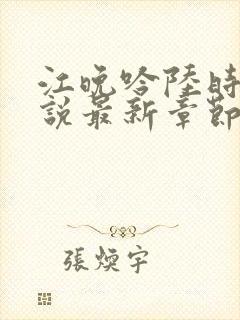 江晚吟陸時
說最新章節
張煥宇